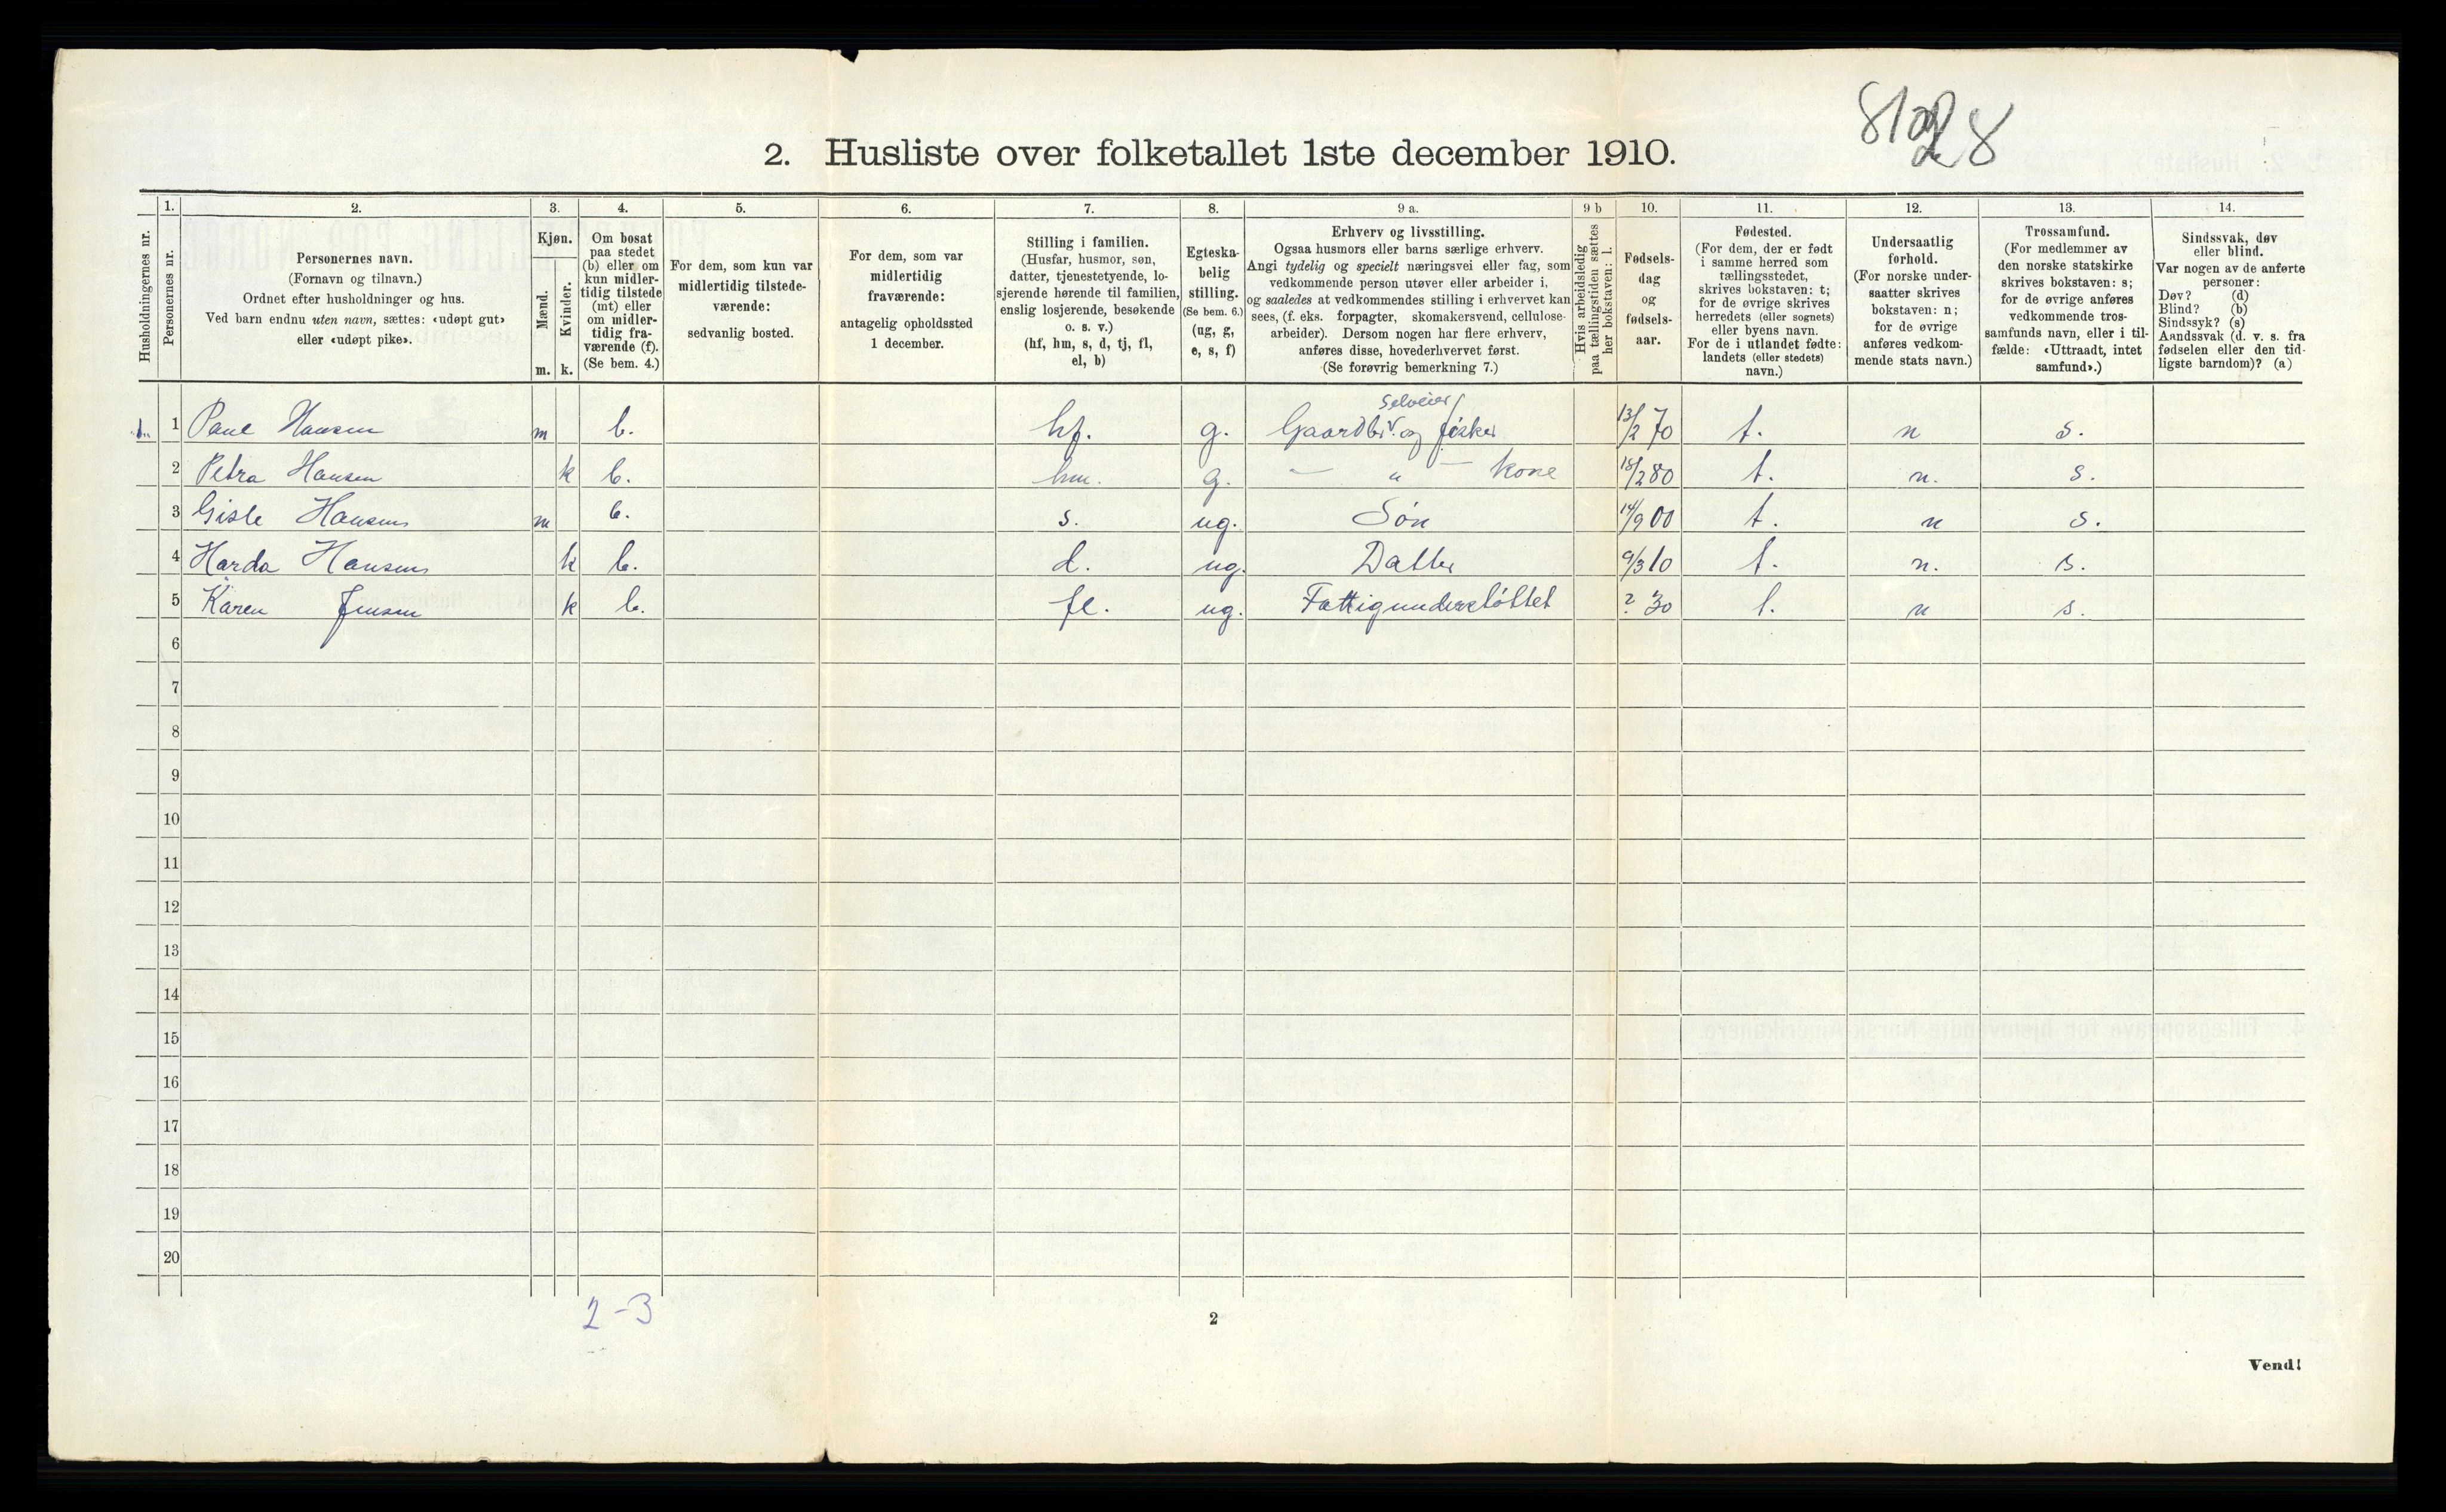 8128
2. Husliste over folketallet 1ste december 1910.
Husholdningernes nr.
1. Personernes nr.
2. Personernes navn.
(Fornavn og tilnavn.)
Ordnet efter husholdninger og hus.
Ved barn endnu uten navn, sættes: «udøpt gut»
eller «udøpt pike».
3. Kjøn.
Mænd. m.
Kvinder. k.
4. Om bosat
paa stedet
(b) eller om
kun midler-
tidig tilstede
(mt) eller
om midler-
tidig fra-
værende (f).
(Se bem. 4.)
5. For dem, som kun var
midlertidig tilstede-
værende:
sedvanlig bosted.
6. For dem, som var
midlertidig
fraværende:
antagelig opholdssted
1 december.
7. Stilling i familien.
(Husfar, husmor, søn,
datter, tjenestetyende, lo-
sjerende hørende til familien,
enslig losjerende, besøkende
o. s. v.)
(hf, hm, s, d, tj, fl,
el, b)
8. Egteska-
belig
stilling.
(Se bem. 6.)
(ug, g,
e, s, f)
9 a. Erhverv og livsstilling.
Ogsaa husmors eller barns særlige erhverv.
Angi tydelig og specielt næringsvei eller fag, som
vedkommende person utøver eller arbeider i,
og saaledes at vedkommendes stilling i erhvervet kan
sees, (f. eks. forpagter, skomakersvend, cellulose-
arbeider). Dersom nogen har flere erhverv,
anføres disse, hovederhvervet først.
(Se forøvrig bemerkning 7.)
9 b Hvis arbeidsledig
paa tællingstiden sættes
her bokstaven: l.
10. Fødsels-
dag
og
fødsels-
aar.
11. Fødested.
(For dem, der er født
i samme herred som
tællingsstedet,
skrives bokstaven: t;
for de øvrige skrives
herredets (eller sognets)
eller byens navn.
For de i utlandet fødte:
landets (eller stedets)
navn.)
12. Undersaatlig
forhold.
(For norske under-
saatter skrives
bokstaven: n;
for de øvrige
anføres vedkom-
mende stats navn.)
13. Trossamfund.
(For medlemmer av
den norske statskirke
skrives bokstaven: s;
for de øvrige anføres
vedkommende tros-
samfunds navn, eller i til-
fælde: «Uttraadt, intet
samfund».)
14. Sindssvak, døv
eller blind.
Var nogen av de anførte
personer:
Døv? (d)
Blind? (b)
Sindssyk? (s)
Aandssvak (d. v. s. fra
fødselen eller den tid-
ligste barndom)? (a)
Selveier
1. 1 Paul Hansen m b. hf. g. Gaardbr. og fisker 13/2 70 t. n s.
2 Petra Hansen k b. hm. g. — " — kone 18/2 80 t. n. s.
3 Gisle Hansen m b. s. ug. Søn 14/9 00 t. n s.
4 Harda Hansen k b. d. ug. Datter 9/3 10 t. n. s.
5 Karen Jensen k b. fl. ug. Fattigunderstøttet ? 30 t. n s.
6
7
8
9
10
11
12
13
14
15
16
17
18
19
20
2-3
2
Vend!